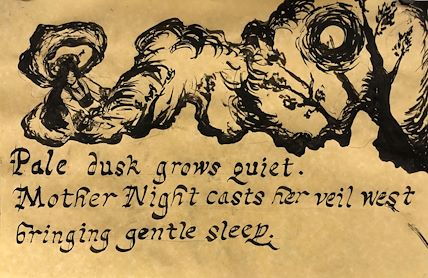 Pale dusk grows quiet.
Mother Night casts her veil west
bringing gentle sleep.